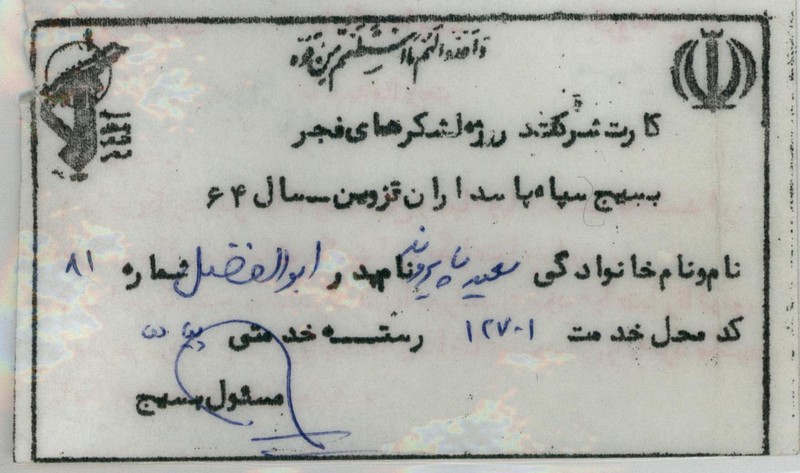 وَ اَعِدّوا لَهُم مَا اسْتَطَعْتُم مِن قُوَّه
کارت شرکت در رژه لشکرهای فجر
بسیج سپاه پاسداران قزوین ــ سال ۶۴
نام و نام خانوادگی سعید نام پدر ابوالفضل شماره ۸۱
کد محل خدمت ۱۲۷۰۱ رسته خدمتی
مسئول بسیج